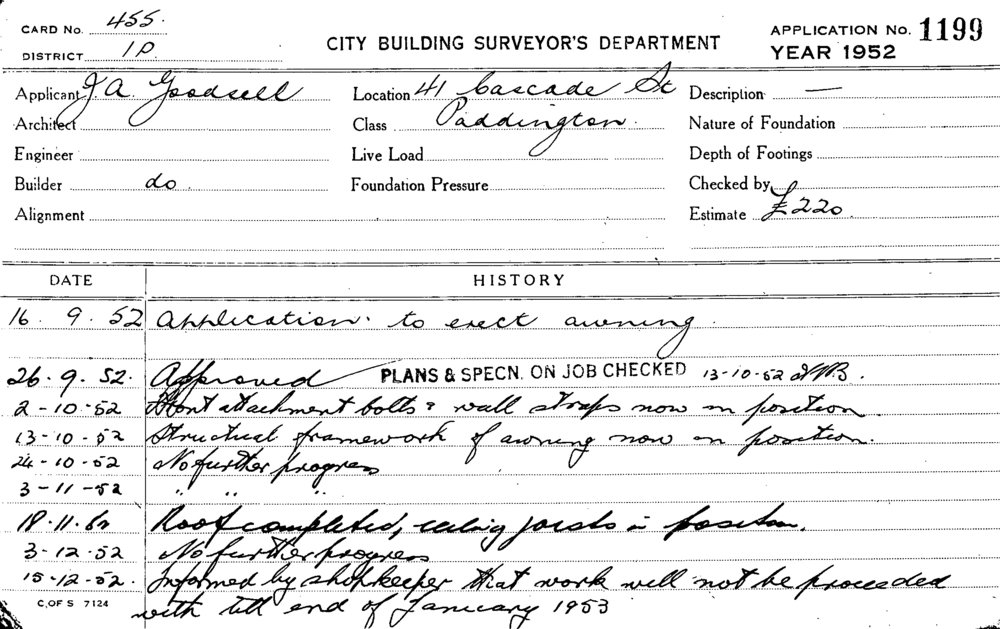 CARD No. 455.
DISTRICT 1D.
CITY BUILDING SURVEYOR'S DEPARTMENT
APPLICATION No. 1199
YEAR 1952
Applicant J.A. Goodsell Location 41 Cascade St Description —
Architect Class Paddington. Nature of Foundation
Engineer Live Load Depth of Footings
Builder do Foundation Pressure Checked by
Alignment Estimate £220.
DATE HISTORY
16. 9. 52 Application to erect awning.
26. 9. 52. Approved PLANS & SPECN. ON JOB CHECKED 13-10-52
2-10-52 attachment bolts & wall straps now in position.
13-10-52 Structural framework of awning now in position.
24-10-52 No further progress
3-11-52 " " "
18.11.52 Roof completed, ceiling joists in position.
3-12-52 No further progress
15-12-52. Informed by shopkeeper that work will not be proceded
C. OF S 7124 with till end of January 1953